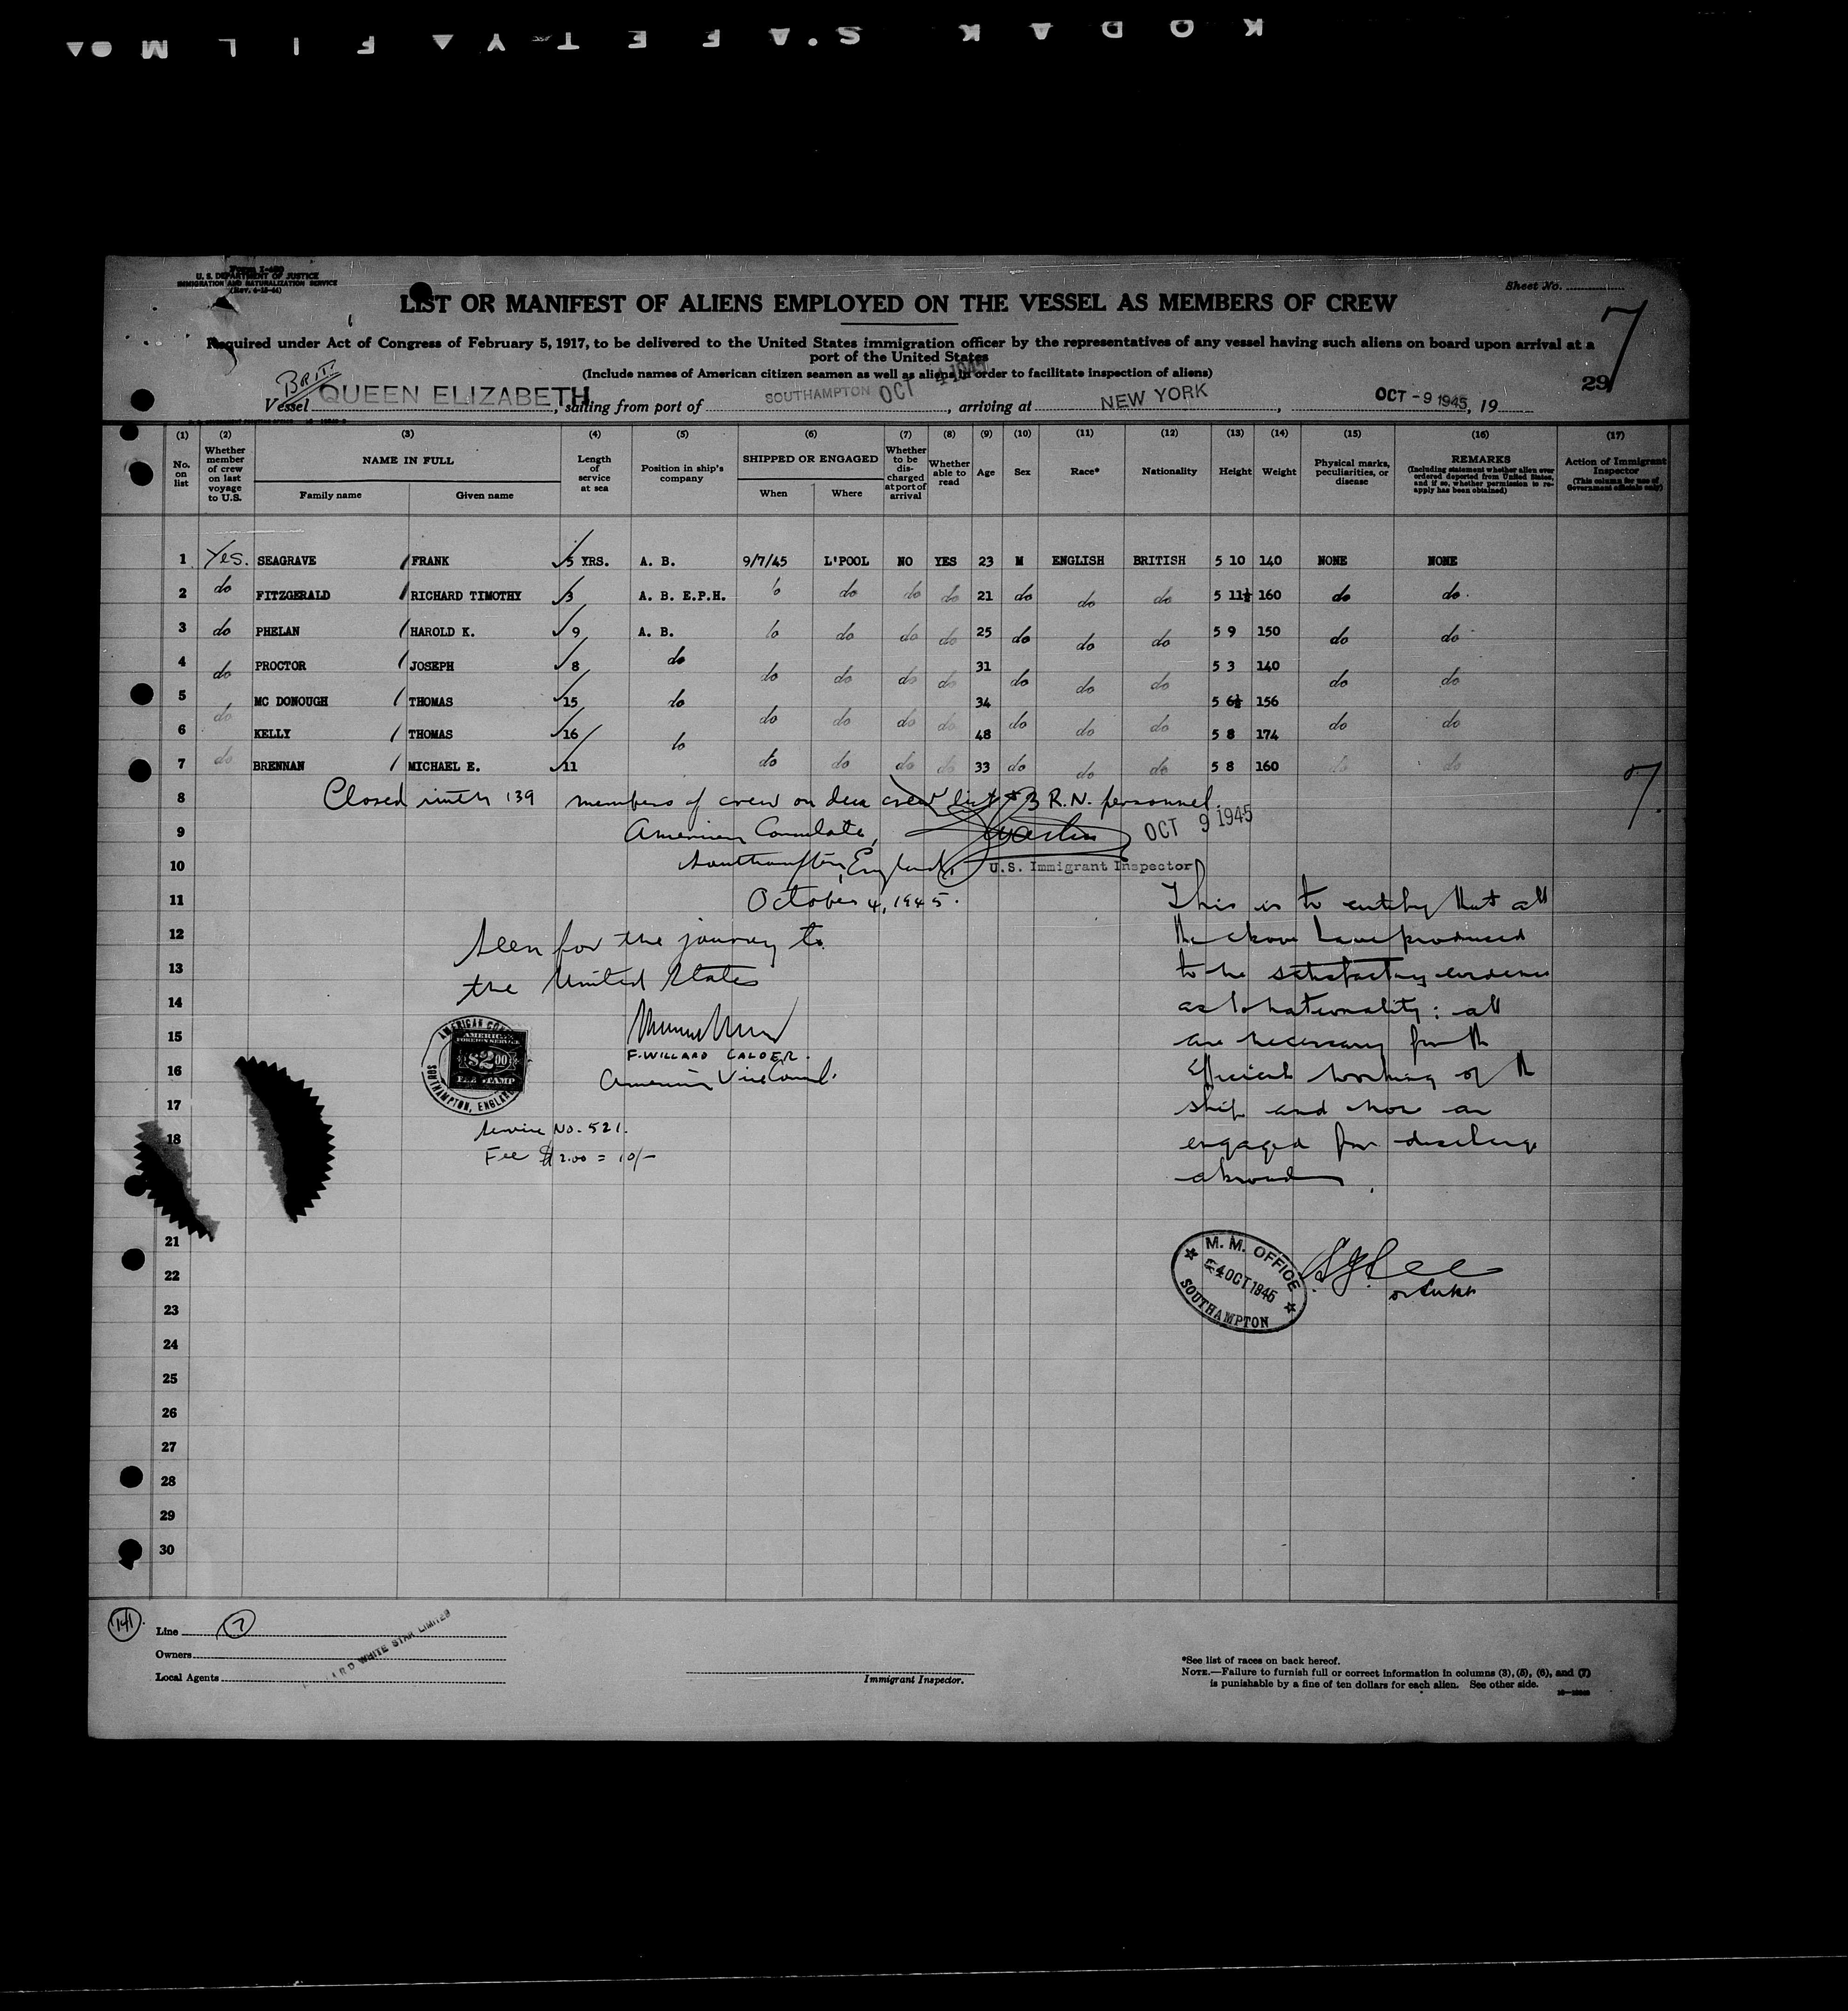 KODAK SAFETY FILM
Form I-480
U. S. DEPARTMENT OF JUSTICE
IMMIGRATION AND NATURALIZATION SERVICE
Sheet No.
LIST OR MANIFEST OF ALIENS EMPLOYED ON THE VESSEL AS MEMBERS OF CREW
7
Required under Act of Congress of February 5, 1917, to be delivered to the United States immigration officer by the representatives of any vessel having such aliens on board upon arrival at a
port of the United States
(Include names of American citizen seamen as well as aliens in order to facilitate inspection of aliens)
29
BRIT.
Vessel QUEEN ELIZABETH, sailing from port of SOUTHAMPTON OCT 4 1945, arriving at NEW YORK, OCT - 9 1945, 19
(1) (2) (3) (4) (5) (6) (7) (8) (9) (10) (11) (12) (13) (14) (15) (16) (17)
No. on list Whether member of crew on last voyage to U.S. NAME IN FULL Family name Given name Length of service at sea Position in ship's company SHIPPED OR ENGAGED When Where Whether to be discharged at port of arrival Whether able to read Age Sex Race* Nationality Height Weight Physical marks, peculiarities, or disease REMARKS (Including statement whether alien ever ordered deported from United States, and if so, whether permission to reapply has been obtained) Action of Immigrant Inspector (This column for use of Government officials only)
1 Yes. SEAGRAVE FRANK 5 YRS. A. B. 9/7/45 L'POOL NO YES 23 M ENGLISH BRITISH 5 10 140 NONE NONE
2 do FITZGERALD RICHARD TIMOTHY 3 A. B. E.P.H. do do do do 21 do do do 5 11½ 160 do do
3 do PHELAN HAROLD K. 9 A. B. do do do do 25 do do do 5 9 150 do do
4 do PROCTOR JOSEPH 8 do do do do do 31 do do do 5 3 140 do do
5 do MC DONOUGH THOMAS 15 do do do do do 34 do do do 5 6½ 156 do do
6 KELLY THOMAS 16 do 48 5 8 174
7 do BRENNAN MICHAEL E. 11 do do do do 33 do do do 5 8 160 do do
7
8 Closed with 139 members of crew on deck crew list + 3 R.N. personnel.
9 American Consulate, OCT 9 1945
10 Southampton, England, U.S. Immigrant Inspector
11 October 4, 1945. This is to certify that all
12 Seen for the journey to the above have produced
13 the United States to me satisfactory evidence
14 as to nationality: all
15 are necessary for the
F. WILLARD CALDER.
16 American Vice Consul. efficient working of the
AMERICAN FOREIGN SERVICE $2.00 FEE STAMP
SOUTHAMPTON, ENGLAND
17 ship and now are
18 Service No. 521. engaged for discharge
Fee $2.00 = 10/-
abroad
21
M. M. OFFICE
4 OCT 1945
SOUTHAMPTON
22
23
24
25
26
27
28
29
30
141
Line 7
Owners
WHITE STAR LIMITED
Local Agents
Immigrant Inspector.
*See list of races on back hereof.
NOTE.—Failure to furnish full or correct information in columns (3), (5), (6), and (7)
is punishable by a fine of ten dollars for each alien. See other side.